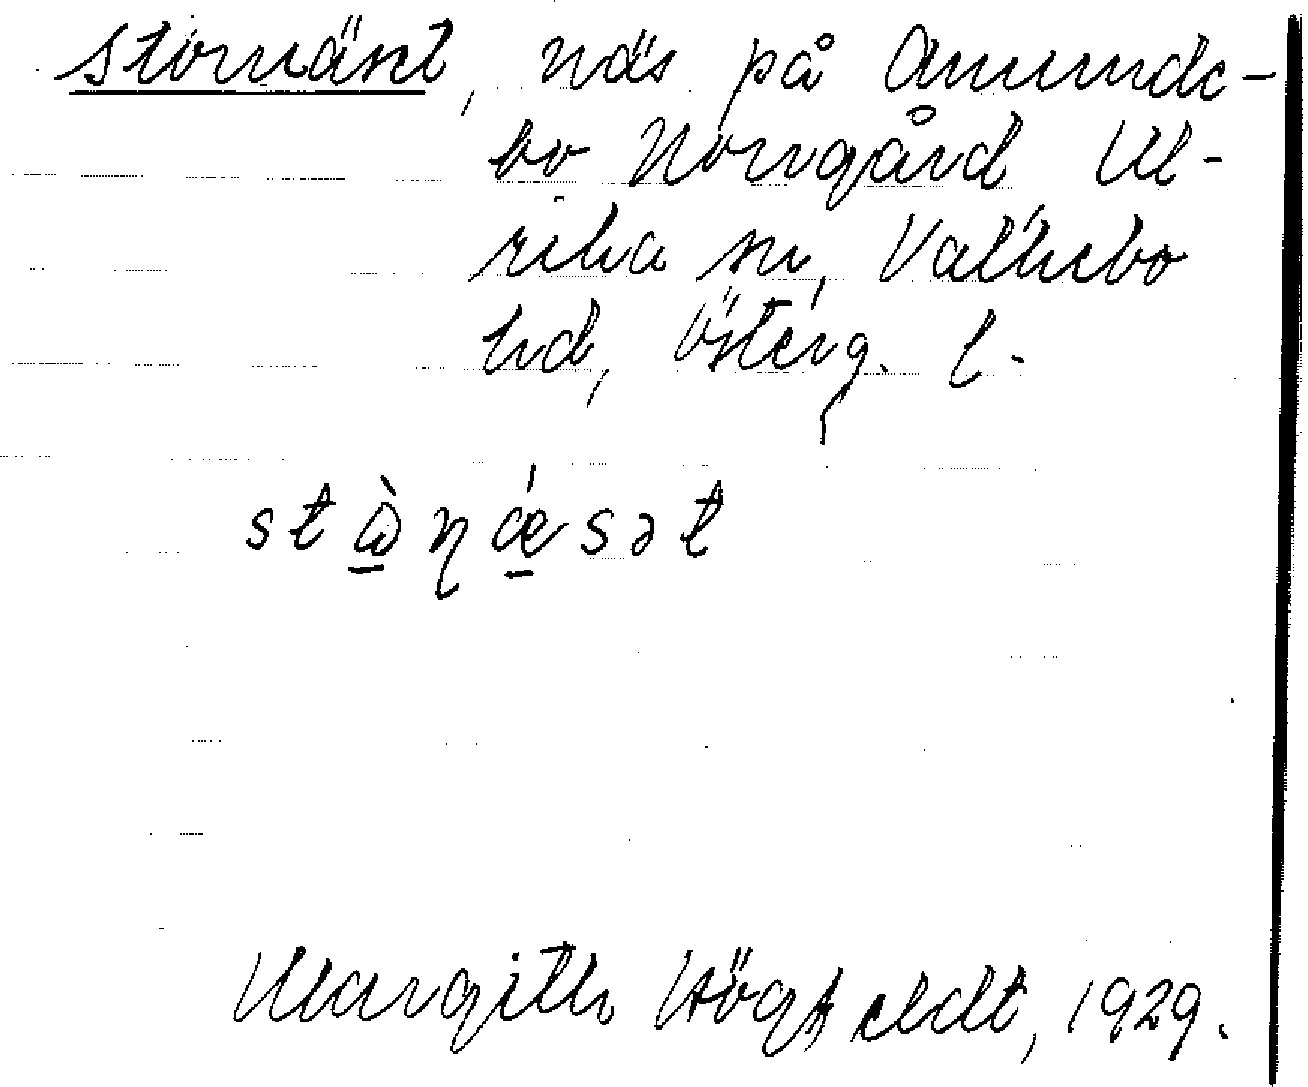 Stornäset, näs på Amunde-
bo Norrgård Ul-
rika sn, Valkebo
hd, Österg. l.
Margith Högfeldt, 1929.